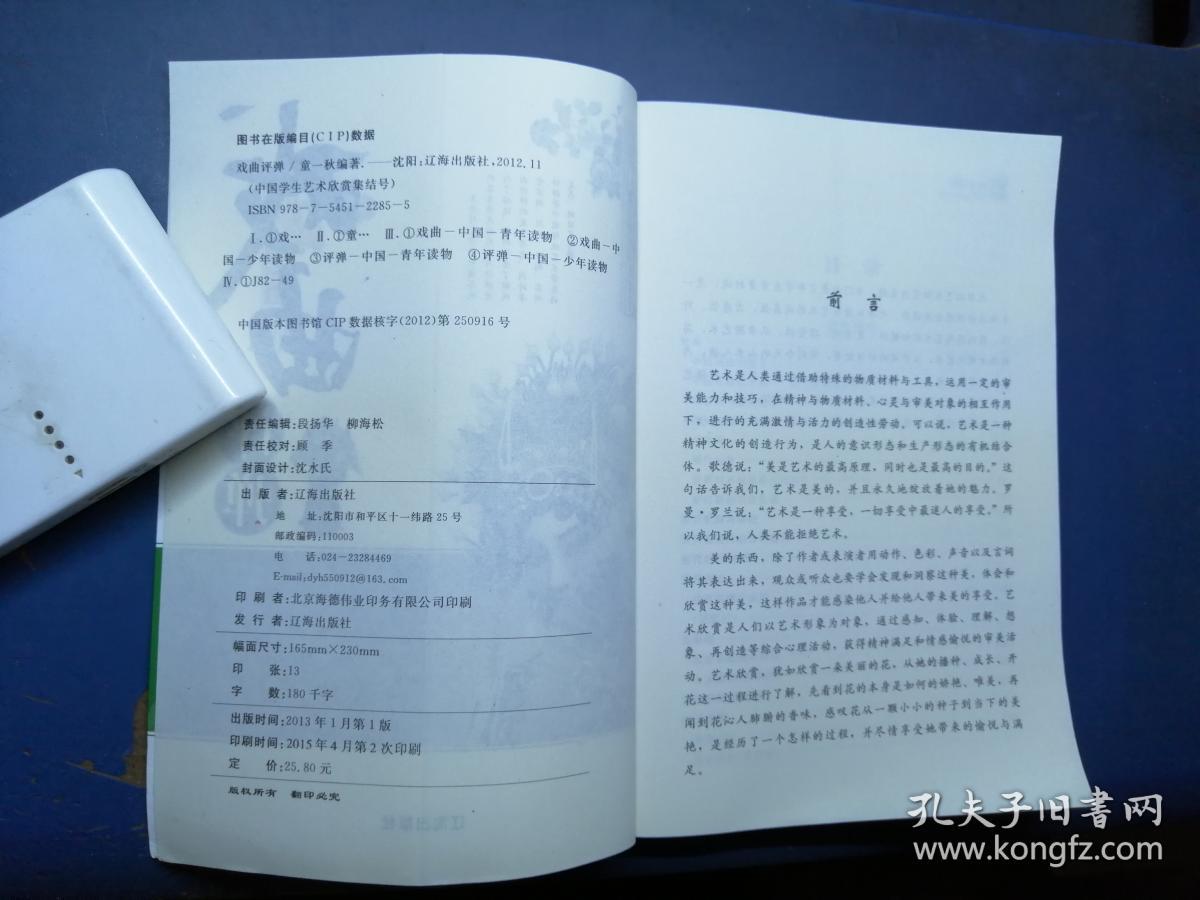 图书在版编目(CIP)数据
戏曲评弹／童一秋编著.——沈阳：辽海出版社，2012.11
（中国学生艺术欣赏集结号）
ISBN 978-7-5451-2285-5
Ⅰ.①戏… Ⅱ.①童… Ⅲ.①戏曲－中国－青年读物 ②戏曲－中
国－少年读物 ③评弹－中国－青年读物 ④评弹－中国－少年读物
Ⅳ.①J82-49
中国版本图书馆CIP数据核字(2012)第250916号
责任编辑：段扬华 柳海松
责任校对：顾 季
封面设计：沈水氏
出 版 者：辽海出版社
地 址：沈阳市和平区十一纬路25号
邮政编码：110003
电 话：024-23284469
E-mail:dyh550912@163.com
印 刷 者：北京海德伟业印务有限公司印刷
发 行 者：辽海出版社
幅面尺寸：165mm×230mm
印 张：13
字 数：180千字
出版时间：2013年1月第1版
印刷时间：2015年4月第2次印刷
定 价：25.80元
版权所有 翻印必究
前 言
艺术是人类通过借助特殊的物质材料与工具，运用一定的审
美能力和技巧，在精神与物质材料、心灵与审美对象的相互作用
下，进行的充满激情与活力的创造性劳动。可以说，艺术是一种
精神文化的创造行为，是人的意识形态和生产形态的有机结合
体。歌德说：“美是艺术的最高原理，同时也是最高的目的。”这
句话告诉我们，艺术是美的，并且永久地绽放着她的魅力。罗
曼·罗兰说：“艺术是一种享受，一切享受中最迷人的享受。”所
以我们说，人类不能拒绝艺术。
美的东西，除了作者或表演者用动作、色彩、声音以及言词
将其表达出来，观众或听众也要学会发现和洞察这种美，体会和
欣赏这种美，这样作品才能感染他人并给他人带来美的享受。艺
术欣赏是人们以艺术形象为对象，通过感知、体验、理解、想
象、再创造等综合心理活动，获得精神满足和情感愉悦的审美活
动。艺术欣赏，犹如欣赏一朵美丽的花，从她的播种、成长、开
花这一过程进行了解，先看到花的本身是如何的娇艳、唯美，再
闻到花沁人肺腑的香味，感叹花从一颗小小的种子到当下的美
艳，是经历了一个怎样的过程，并尽情享受她带来的愉悦与满
足。
孔夫子旧书网
www.kongfz.com